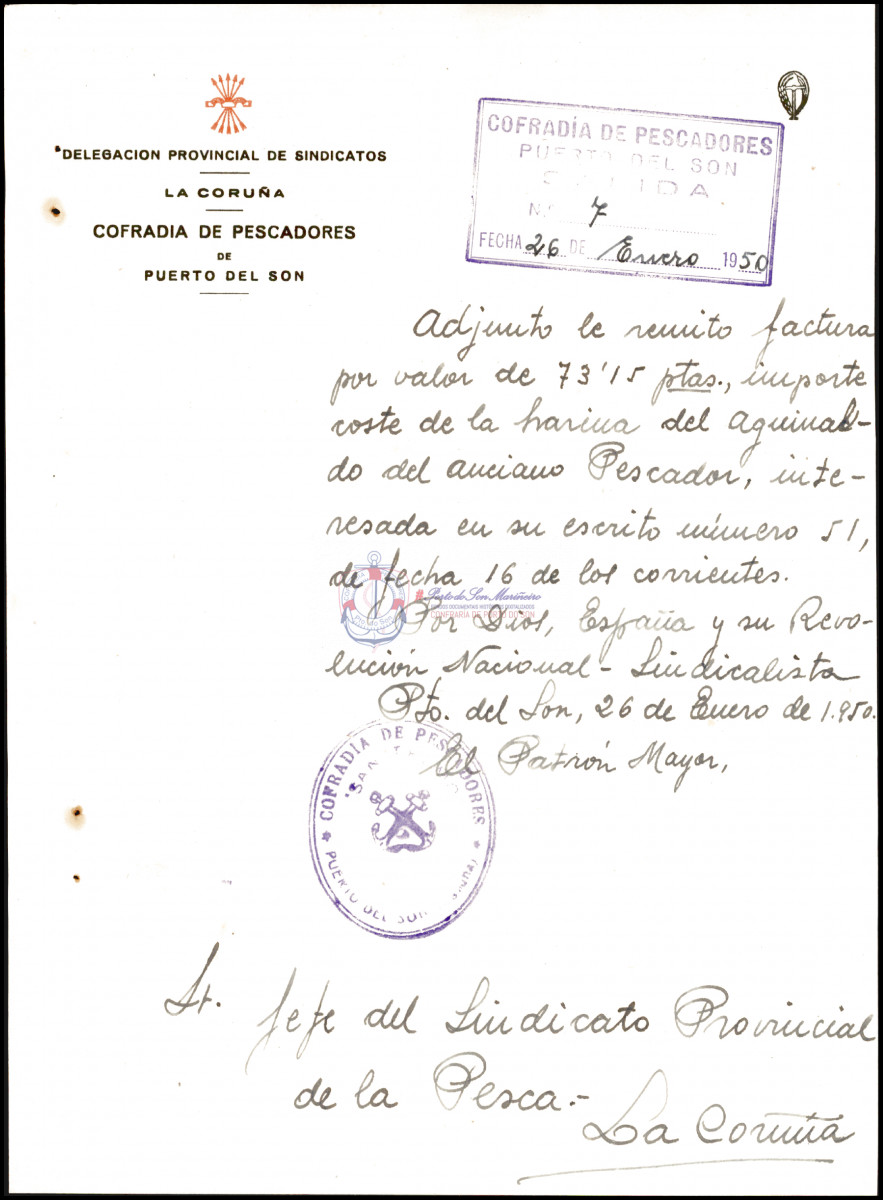 DELEGACION PROVINCIAL DE SINDICATOS
LA CORUÑA
COFRADIA DE PESCADORES
DE
PUERTO DEL SON
COFRADÍA DE PESCADORES
PUERTO DEL SON
SALIDA
N.º 7
FECHA 26 DE Enero 1950
Adjunto le remito factura
por valor de 73'15 ptas., importe
coste de la harina del aguinal-
do del anciano Pescador, inte-
resada en su escrito número 51,
de fecha 16 de los corrientes.
Por Dios, España y su Revo-
lución Nacional-Sindicalista
Pto. del Son, 26 de Enero de 1.950.
El Patrón Mayor,
Porto do Son Mariñeiro
CONFRARÍA DE PORTO DO SON
COFRADÍA DE PESCADORES
PUERTO DEL SON
Sr. Jefe del Sindicato Provincial
de la Pesca.-
La Coruña